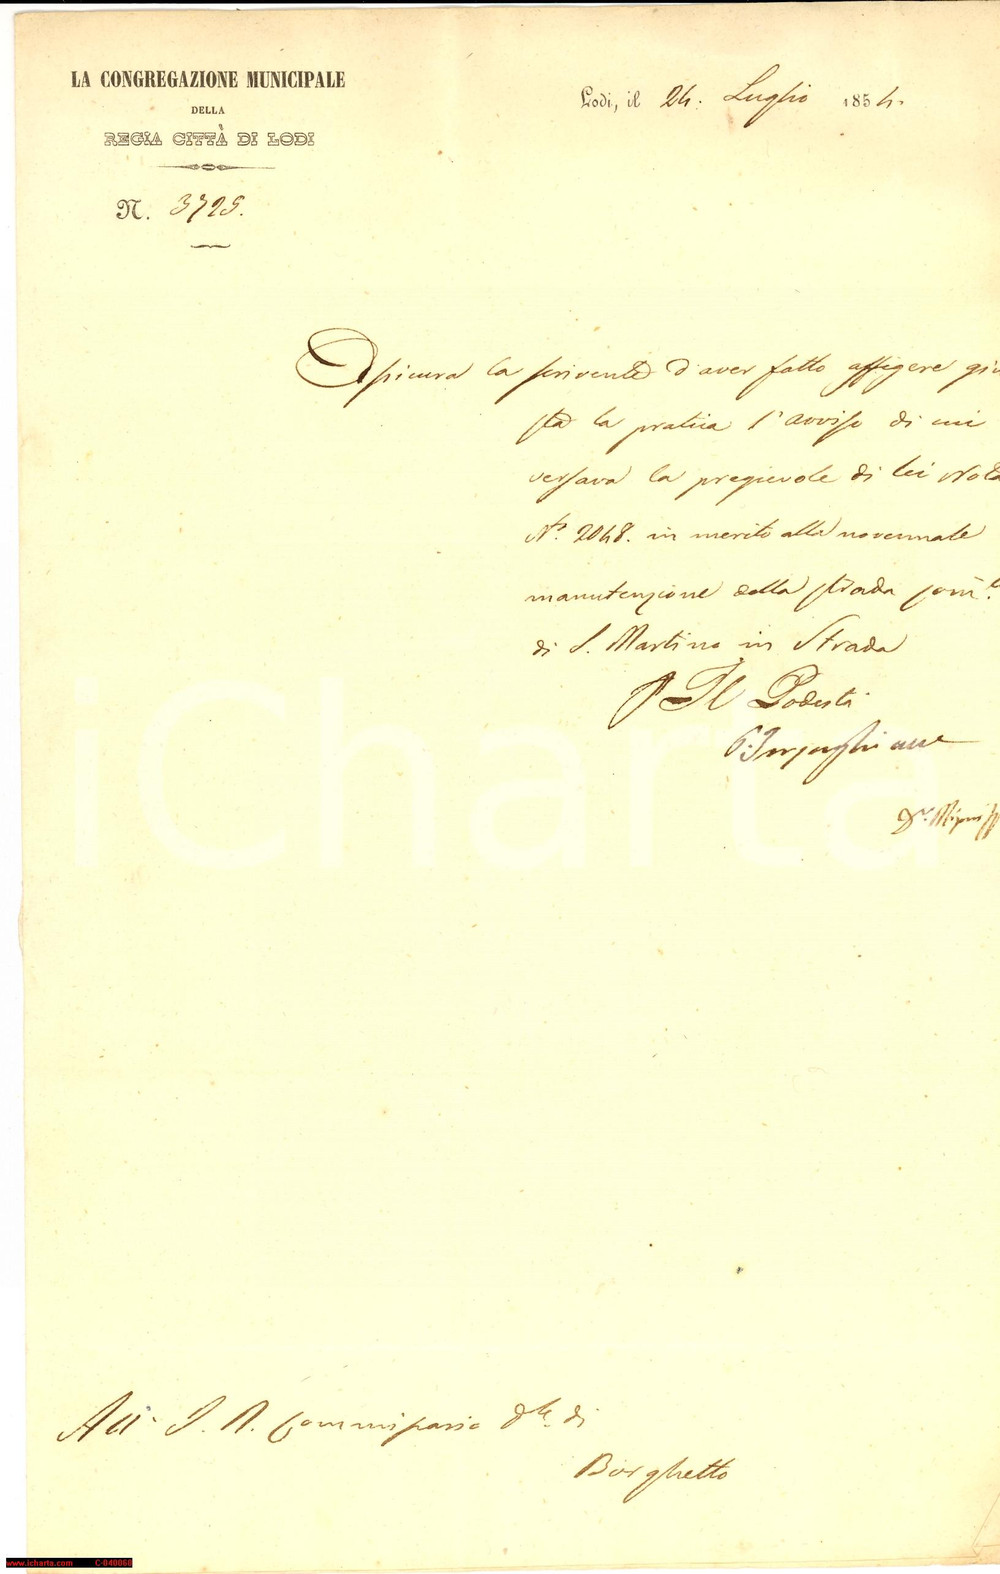 LA CONGREGAZIONE MUNICIPALE
DELLA
REGIA CITTÀ DI LODI
Lodi, il 24. Luglio 1854.
N. 3725.
Assicura la scrivente d'aver fatto affigere giu
sta la pratica l'avviso di cui
versava la pregievole di lei Nota
N.° 2048. in merito alla novennale
manutenzione della strada com.e
di S. Martino in Strada
Il Podestà
All' I. R. Commissario D.le di
Borghetto
iCharta
www.icharta.com C-040060